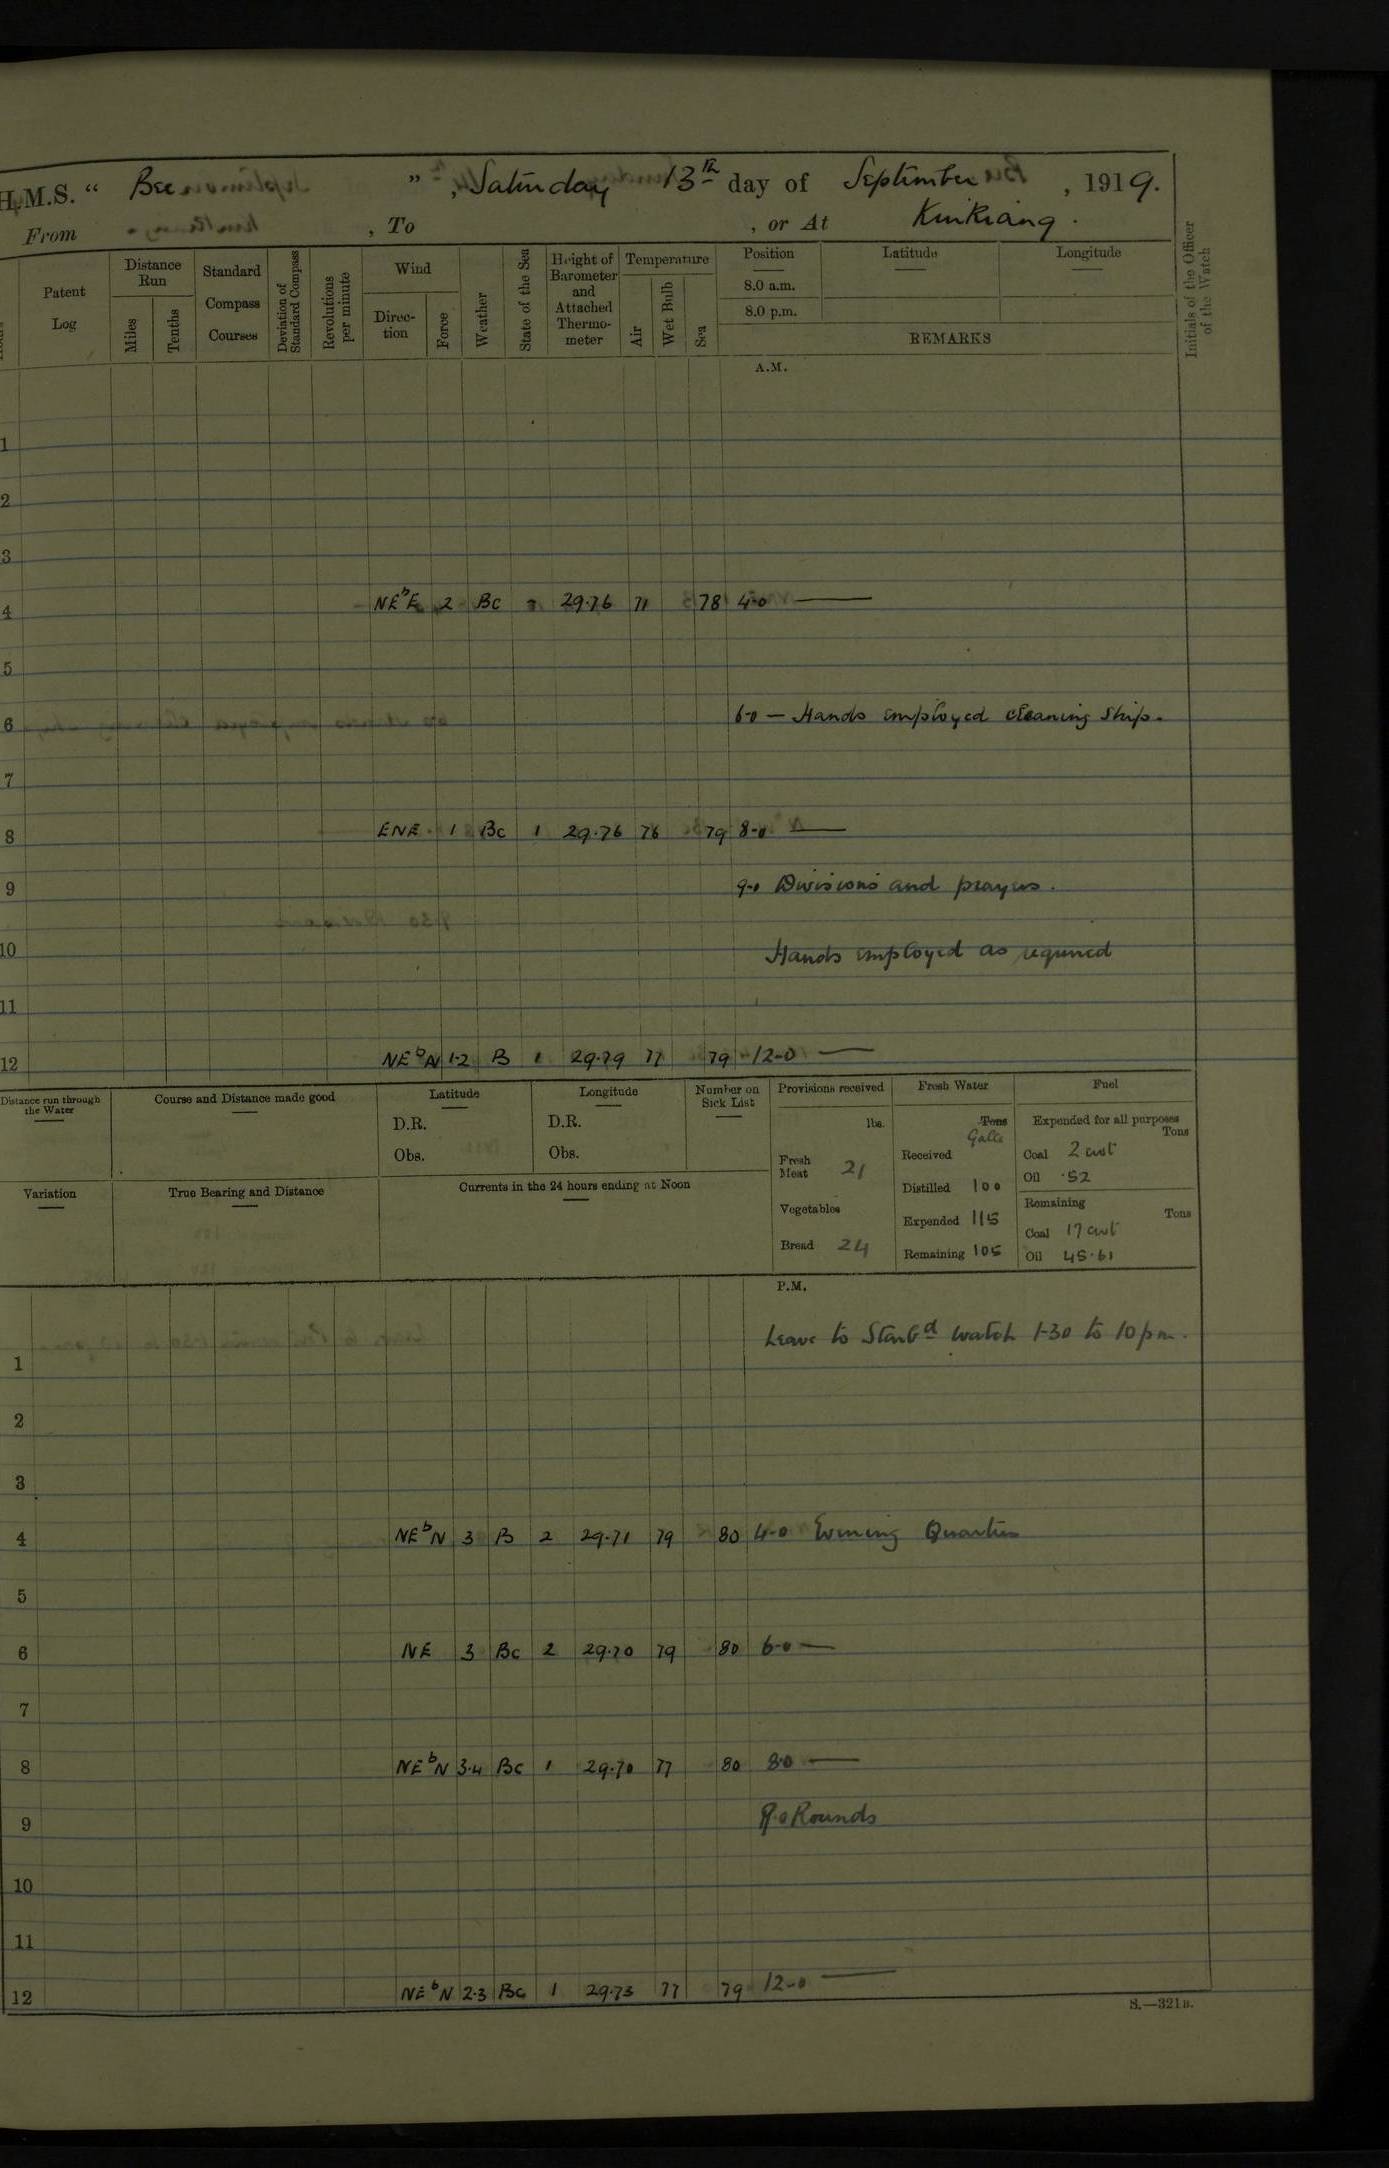 H.M.S. “ Bee ”, Saturday 13th day of September, 1919.
From , To , or At Kiukiang.
Patent Log
Distance Run
Miles
Tenths
Standard Compass Courses
Deviation of Standard Compass
Revolutions per minute
Wind
Direction
Force
Weather
State of the Sea
Height of Barometer and Attached Thermometer
Temperature
Air
Wet Bulb
Sea
Position
8.0 a.m.
8.0 p.m.
Latitude
Longitude
REMARKS
Initials of the Officer of the Watch
A.M.
1
2
3
4 NEbE 2 Bc 29.76 71 78 4-0 —
5
6 6-0 — Hands employed cleaning ship.
7
8 ENE 1 Bc 1 29.76 76 79 8-0 —
9 9-0 Divisions and prayers.
10 Hands employed as required
11
12 NEbN 1.2 B 1 29.79 77 79 12-0 —
Distance run through the Water
Course and Distance made good
Latitude
D.R.
Obs.
Longitude
D.R.
Obs.
Number on Sick List
Provisions received
lbs.
Fresh Meat 21
Vegetables
Bread 24
Fresh Water
Tons Galls
Received
Distilled 100
Expended 115
Remaining 105
Fuel
Expended for all purposes
Tons
Coal 2 cwt
Oil .52
Remaining
Tons
Coal 17 cwt
Oil 45.61
Variation
True Bearing and Distance
Currents in the 24 hours ending at Noon
P.M.
Leave to Starbd watch 1-30 to 10 pm.
1
2
3
4 NEbN 3 B 2 29.71 79 80 4-0 Evening Quarters
5
6 NE 3 Bc 2 29.70 79 80 6-0 —
7
8 NEbN 3.4 Bc 1 29.70 77 80 8.0 —
9 9.0 Rounds
10
11
12 NEbN 2.3 Bc 1 29.73 77 79 12-0 —
S.—321B.